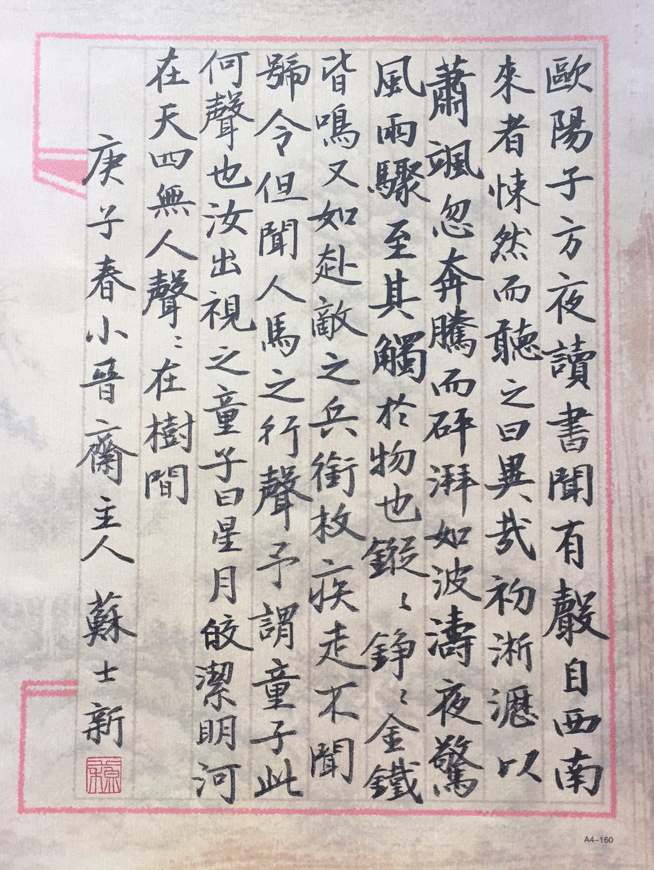 歐陽子方夜讀書聞有聲自西南
來者悚然而聽之曰異哉初淅瀝以
蕭颯忽奔騰而砰湃如波濤夜驚
風雨驟至其觸於物也鏦〻錚〻金鐵
皆鳴又如赴敵之兵銜枚疾走不聞
號令但聞人馬之行聲予謂童子此
何聲也汝出視之童子曰星月皎潔明河
在天四無人聲〻在樹間
庚子春小晉齋主人 蘇士新
A4-160